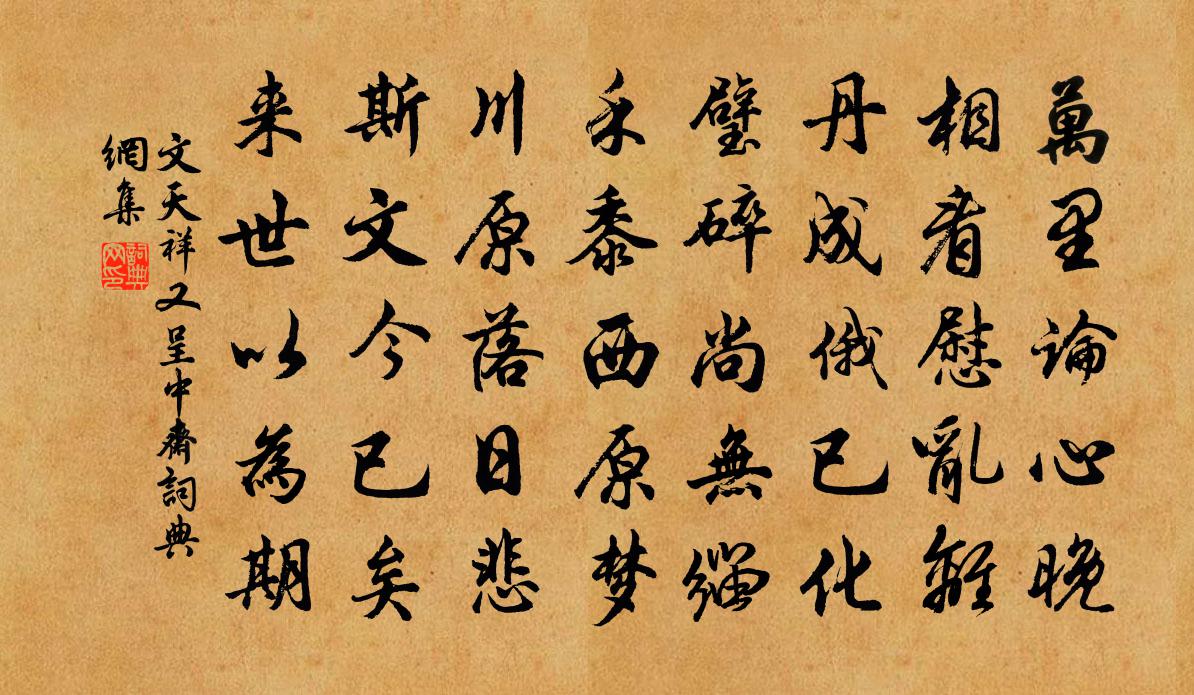 萬里論心晚
相看慰亂離
丹成俄已化
璧碎尚無緇
禾黍西原梦
川原落日悲
斯文今已矣
来世以為期
文天祥又呈中齋詞典
網集
詞典
网印